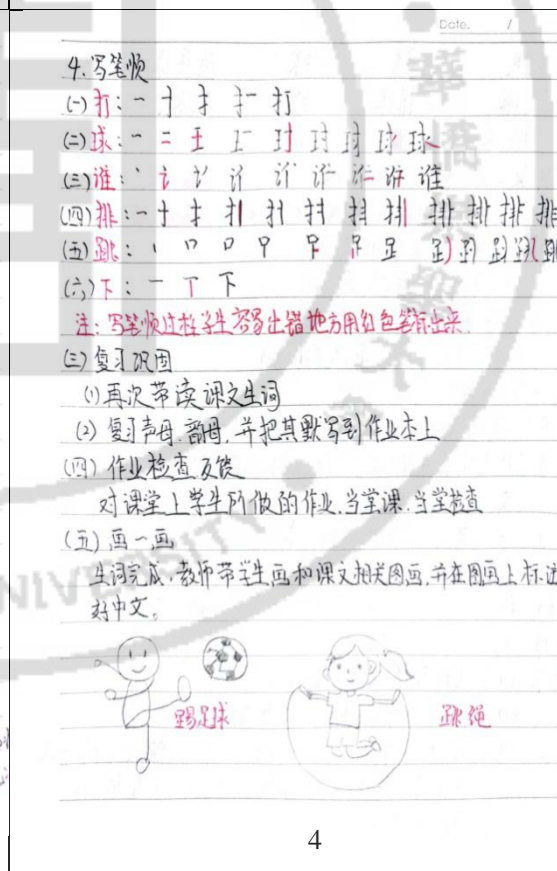 Date. /
4.写笔顺
(一)打：一 十 扌 扌一 打
(二)球：一 二 王 球
(三)谁：丶 讠 谁
(四)排：一 十 扌 排
(五)跳：丨 口 口 𧾷
(六)下：一 丅 下
注：写笔顺过程学生容易出错地方用红色笔标出来.
(三)复习巩固
(1)再次带读课文生词
(2)复习声母.韵母,并把其默写到作业本上
(四)作业检查反馈
对课堂上学生所做的作业.当堂课.当堂检查
(五)画一画
生词完成,教师带学生画和课文相关图画,并在图画上标注
好中文。
踢足球
跳绳
4